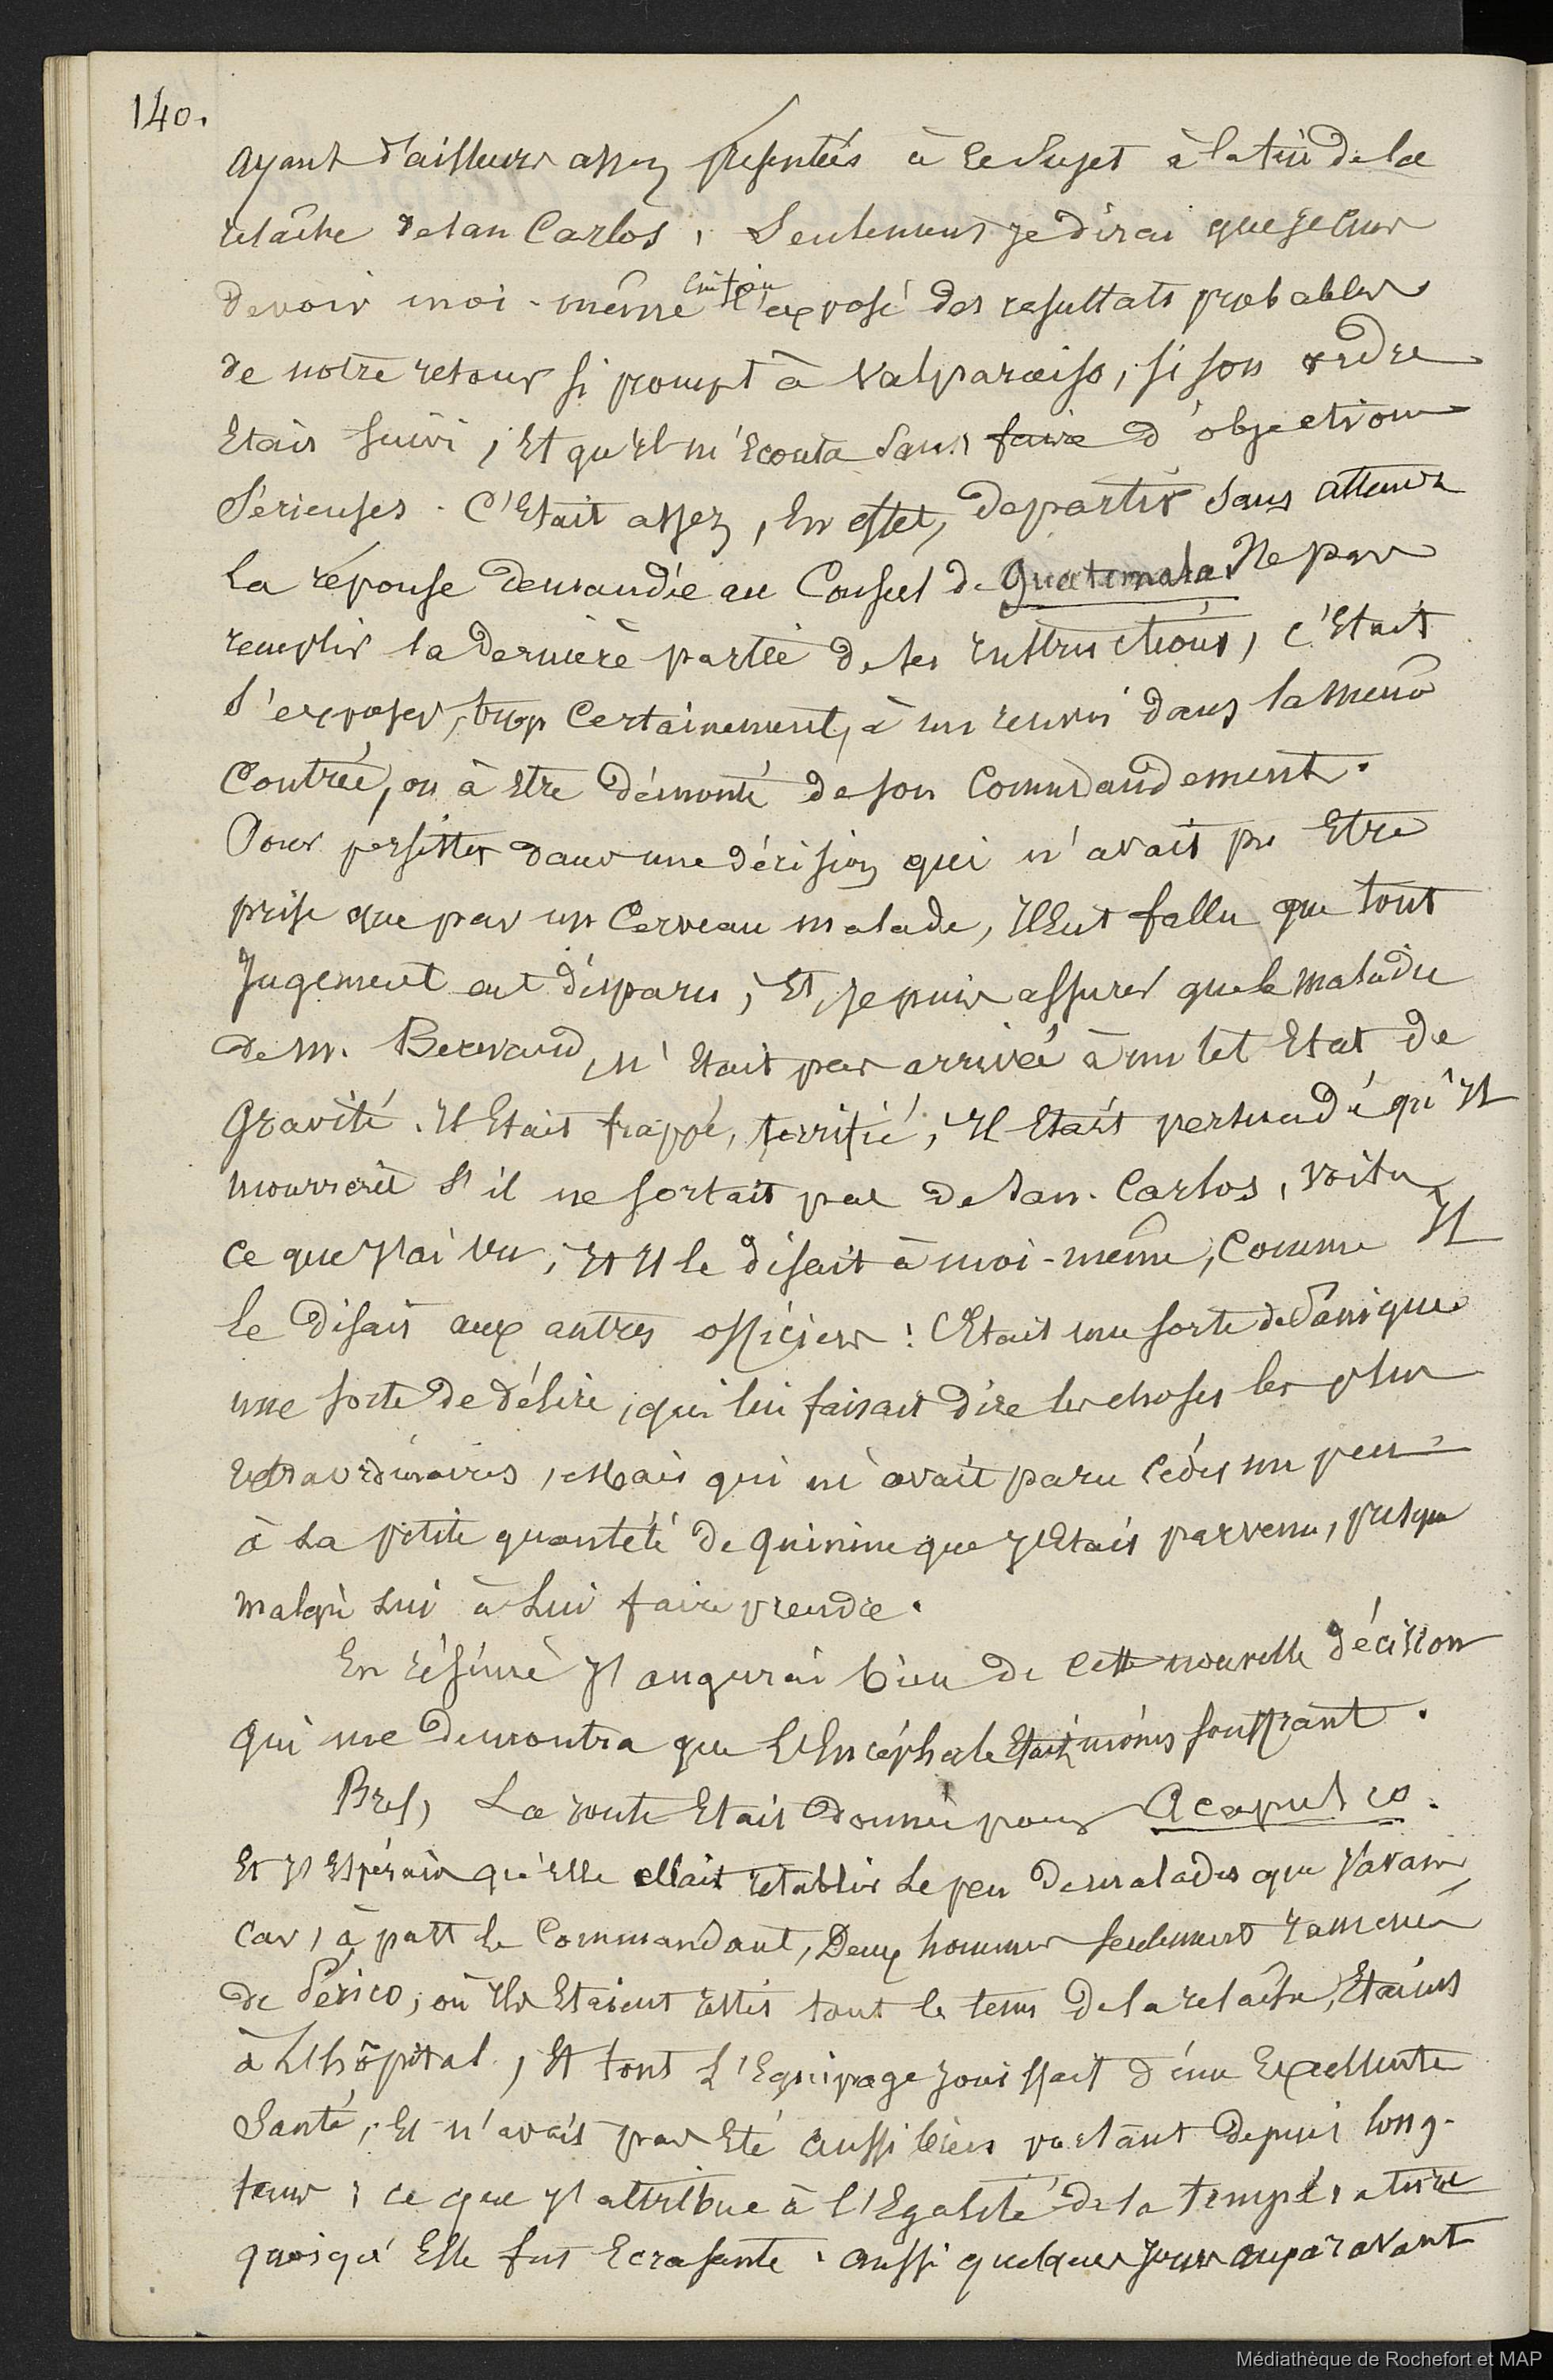 140.
ayant d'ailleurs assez présentées à ce Sujet à la fin de la
relâche de San Carlos, Seulement je dirai que je crus
devoir moi-même lui faire l'exposé des resultats probables
de notre retour si prompt à Valparaiso, si son ordre
Etais suivi, Et qu'il m'écouta sans faire d'objections
Sérieuses. C'Etait assez, En effet, de partir sans attendre
la réponse demandée au Consul de Guatemala. Ne pas
remplir la dernière partie de ses instructions, c'Etait
s'exposer, trop certainement, à un renvoi dans la même
Contrée, ou à Etre démonté de son Commandement.
Pour persister dans une décision qui n'avait pu Etre
prise que par un Cerveau malade, Il Eut fallu que tout
Jugement eut disparu, Et, je puis assurer que la maladie
de M. Bernard, n'Etait pas arrivée à un tel Etat de
Gravité. Il Etait frappé, terrifié, Il Etait persuadé qu'Il
mourrait s'il ne sortait pas de San-Carlos, voila
ce que J'ai vu, Et Il le disait à moi-même, Comme Il
le disait aux autres officiers! C'Etait une sorte de Panique
une sorte de délire, qui lui faisait dire les choses les plus
Extraordinaires, Mais qui m'avait paru céder un peu
à La petite quantité de Quinine que J'Etais parvenu, presque
malgré Lui à Lui faire prendre.
En résumé J'augurai bien de cette nouvelle décision
qui me demontra que L'Encéphale Etait moins souffrant.
Bref, La route Etait donnée pour Acapulco.
Et J'Espérais qu'Elle allait retablir Le peu de malades que J'avais,
Car, à part le Commandant, Deux hommes seulement ramenés
de Périco, où Ils Etaient restés tout le tems de la relâche, Etaient
à L'hôpital, Et tout L'Equipage jouissait d'une Excellente
Santé, Et n'avait pas Eté aussi bien portant depuis long-
tems; ce que J'attribue à l'Egalité de la température
quoiqu'Elle fut Ecrasante. Aussi quelques jours auparavant
Médiathèque de Rochefort et MAP